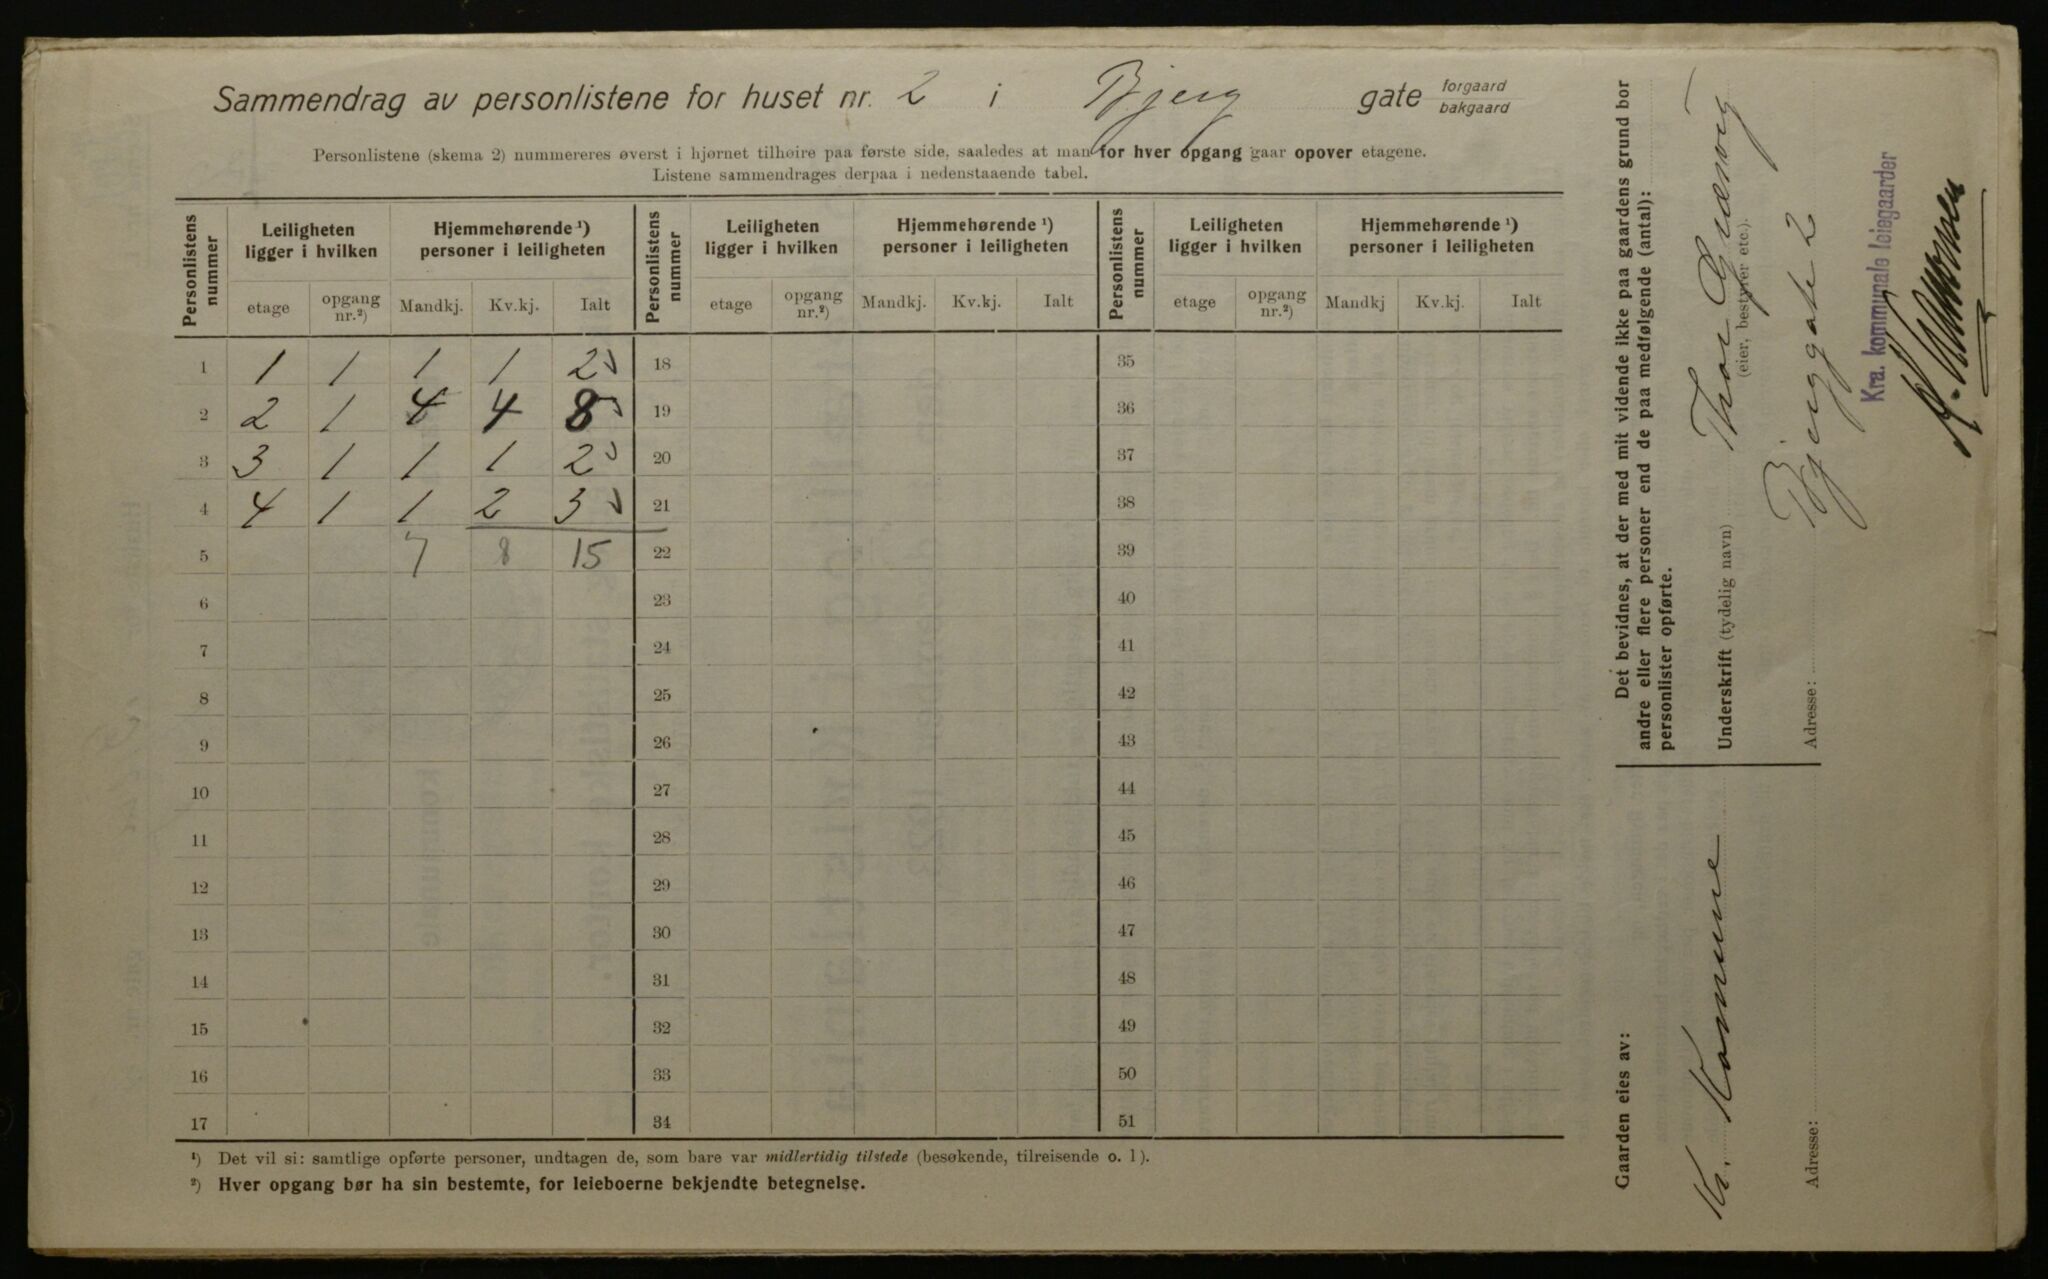 Sammendrag av personlistene for huset nr. 2 i Bjerg gate forgaard bakgaard
Personlistene (skema 2) nummereres øverst i hjørnet tilhøire paa første side, saaledes at man for hver opgang gaar opover etagene.
Listene sammendrages derpaa i nedenstaaende tabel.
Personlistens nummer Leiligheten ligger i hvilken Hjemmehørende ¹) personer i leiligheten Personlistens nummer Leiligheten ligger i hvilken Hjemmehørende ¹) personer i leiligheten Personlistens nummer Leiligheten ligger i hvilken Hjemmehørende ¹) personer i leiligheten
etage opgang nr.²) Mandkj. Kv.kj. Ialt etage opgang nr.²) Mandkj. Kv.kj. Ialt etage opgang nr.²) Mandkj Kv.kj. Ialt
1 1 1 1 1 2 18 35
2 2 1 4 4 8 19 36
3 3 1 1 1 2 20 37
4 4 1 1 2 3 21 38
5 7 8 15 22 39
6 23 40
7 24 41
8 25 42
9 26 43
10 27 44
11 28 45
12 29 46
13 30 47
14 31 48
15 32 49
16 33 50
17 34 51
¹) Det vil si: samtlige opførte personer, undtagen de, som bare var midlertidig tilstede (besøkende, tilreisende o. l).
²) Hver opgang bør ha sin bestemte, for leieboerne bekjendte betegnelse.
Det bevidnes, at der med mit vidende ikke paa gaardens grund bor
andre eller flere personer end de paa medfølgende (antal):
personlister opførte.
Underskrift (tydelig navn) Thor
(eier, bestyrer etc.).
Adresse: Bjerggate 2
Kra. kommunale leiegaarder
Gaarden eies av:
Kr. Kommune
Adresse: